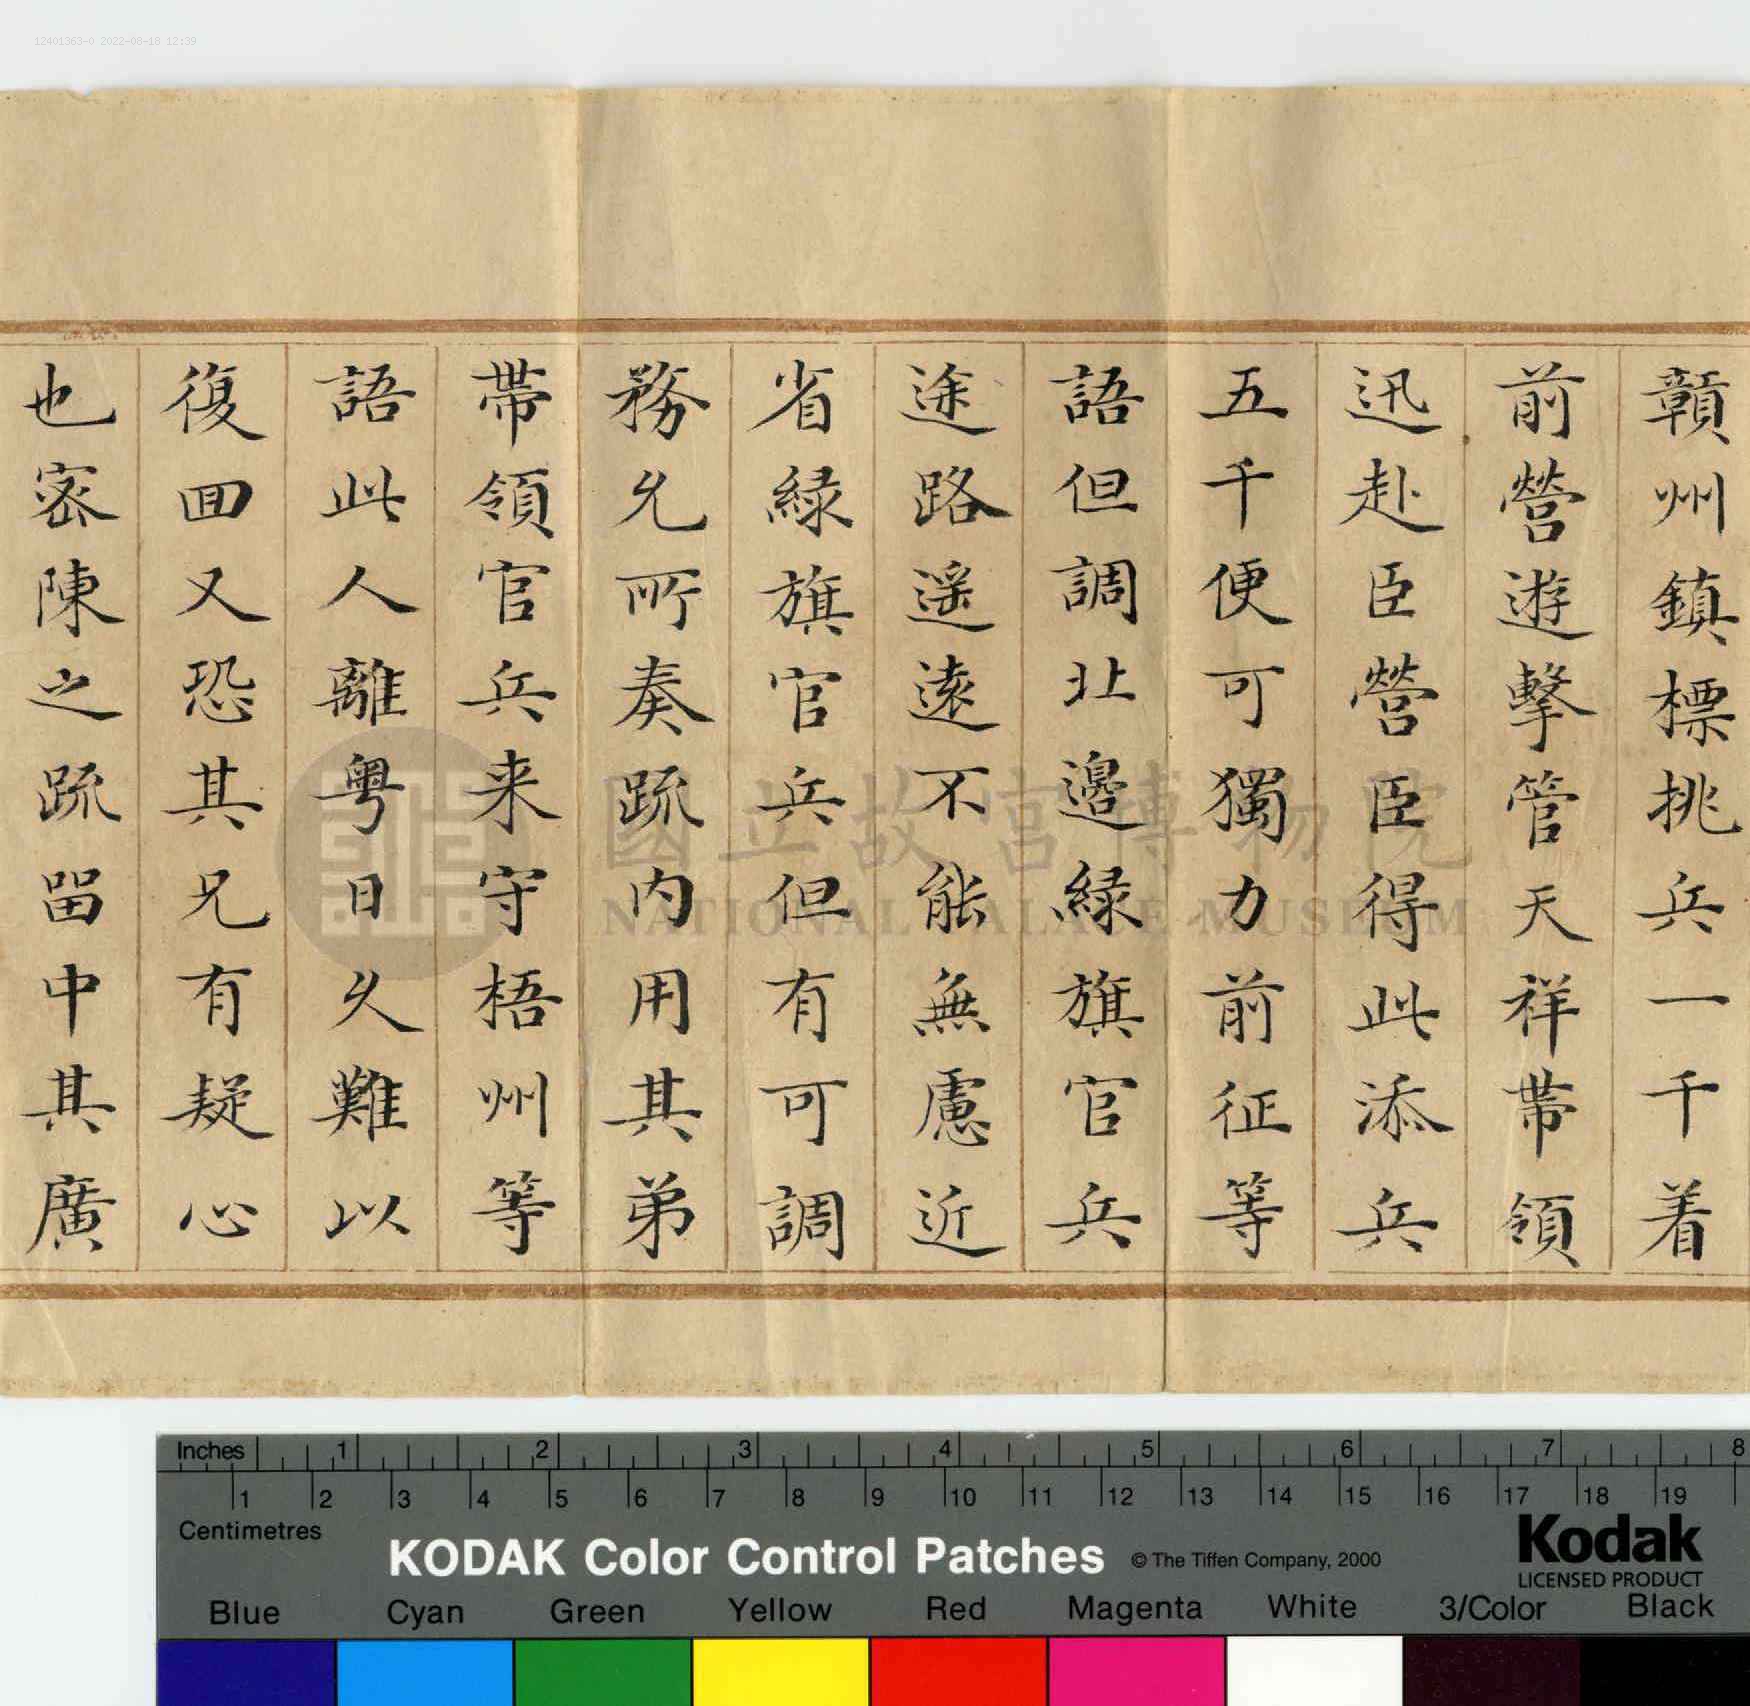 12401363-0 2022-08-18 12:39
贑州鎮標挑兵一千着
前營遊擊管天祥帶領
迅赴臣營臣得此添兵
五千便可獨力前征等
語但調北邉綠旗官兵
途路遥遠不能無慮近
省綠旗官兵但有可調
務允所奏疏内用其弟
帶領官兵来守梧州等
語此人離粤日久難以
復回又恐其兄有疑心
也宻陳之疏留中其廣
國立故宮博物院
NATIONAL PALACE MUSEUM
Inches 1 2 3 4 5 6 7 8
1 2 3 4 5 6 7 8 9 10 11 12 13 14 15 16 17 18 19
Centimetres
KODAK Color Control Patches © The Tiffen Company, 2000
Kodak
LICENSED PRODUCT
Blue Cyan Green Yellow Red Magenta White 3/Color Black